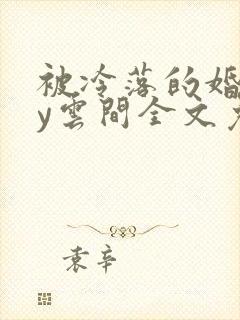 被冷落的婚
y雲間全文
袁辛